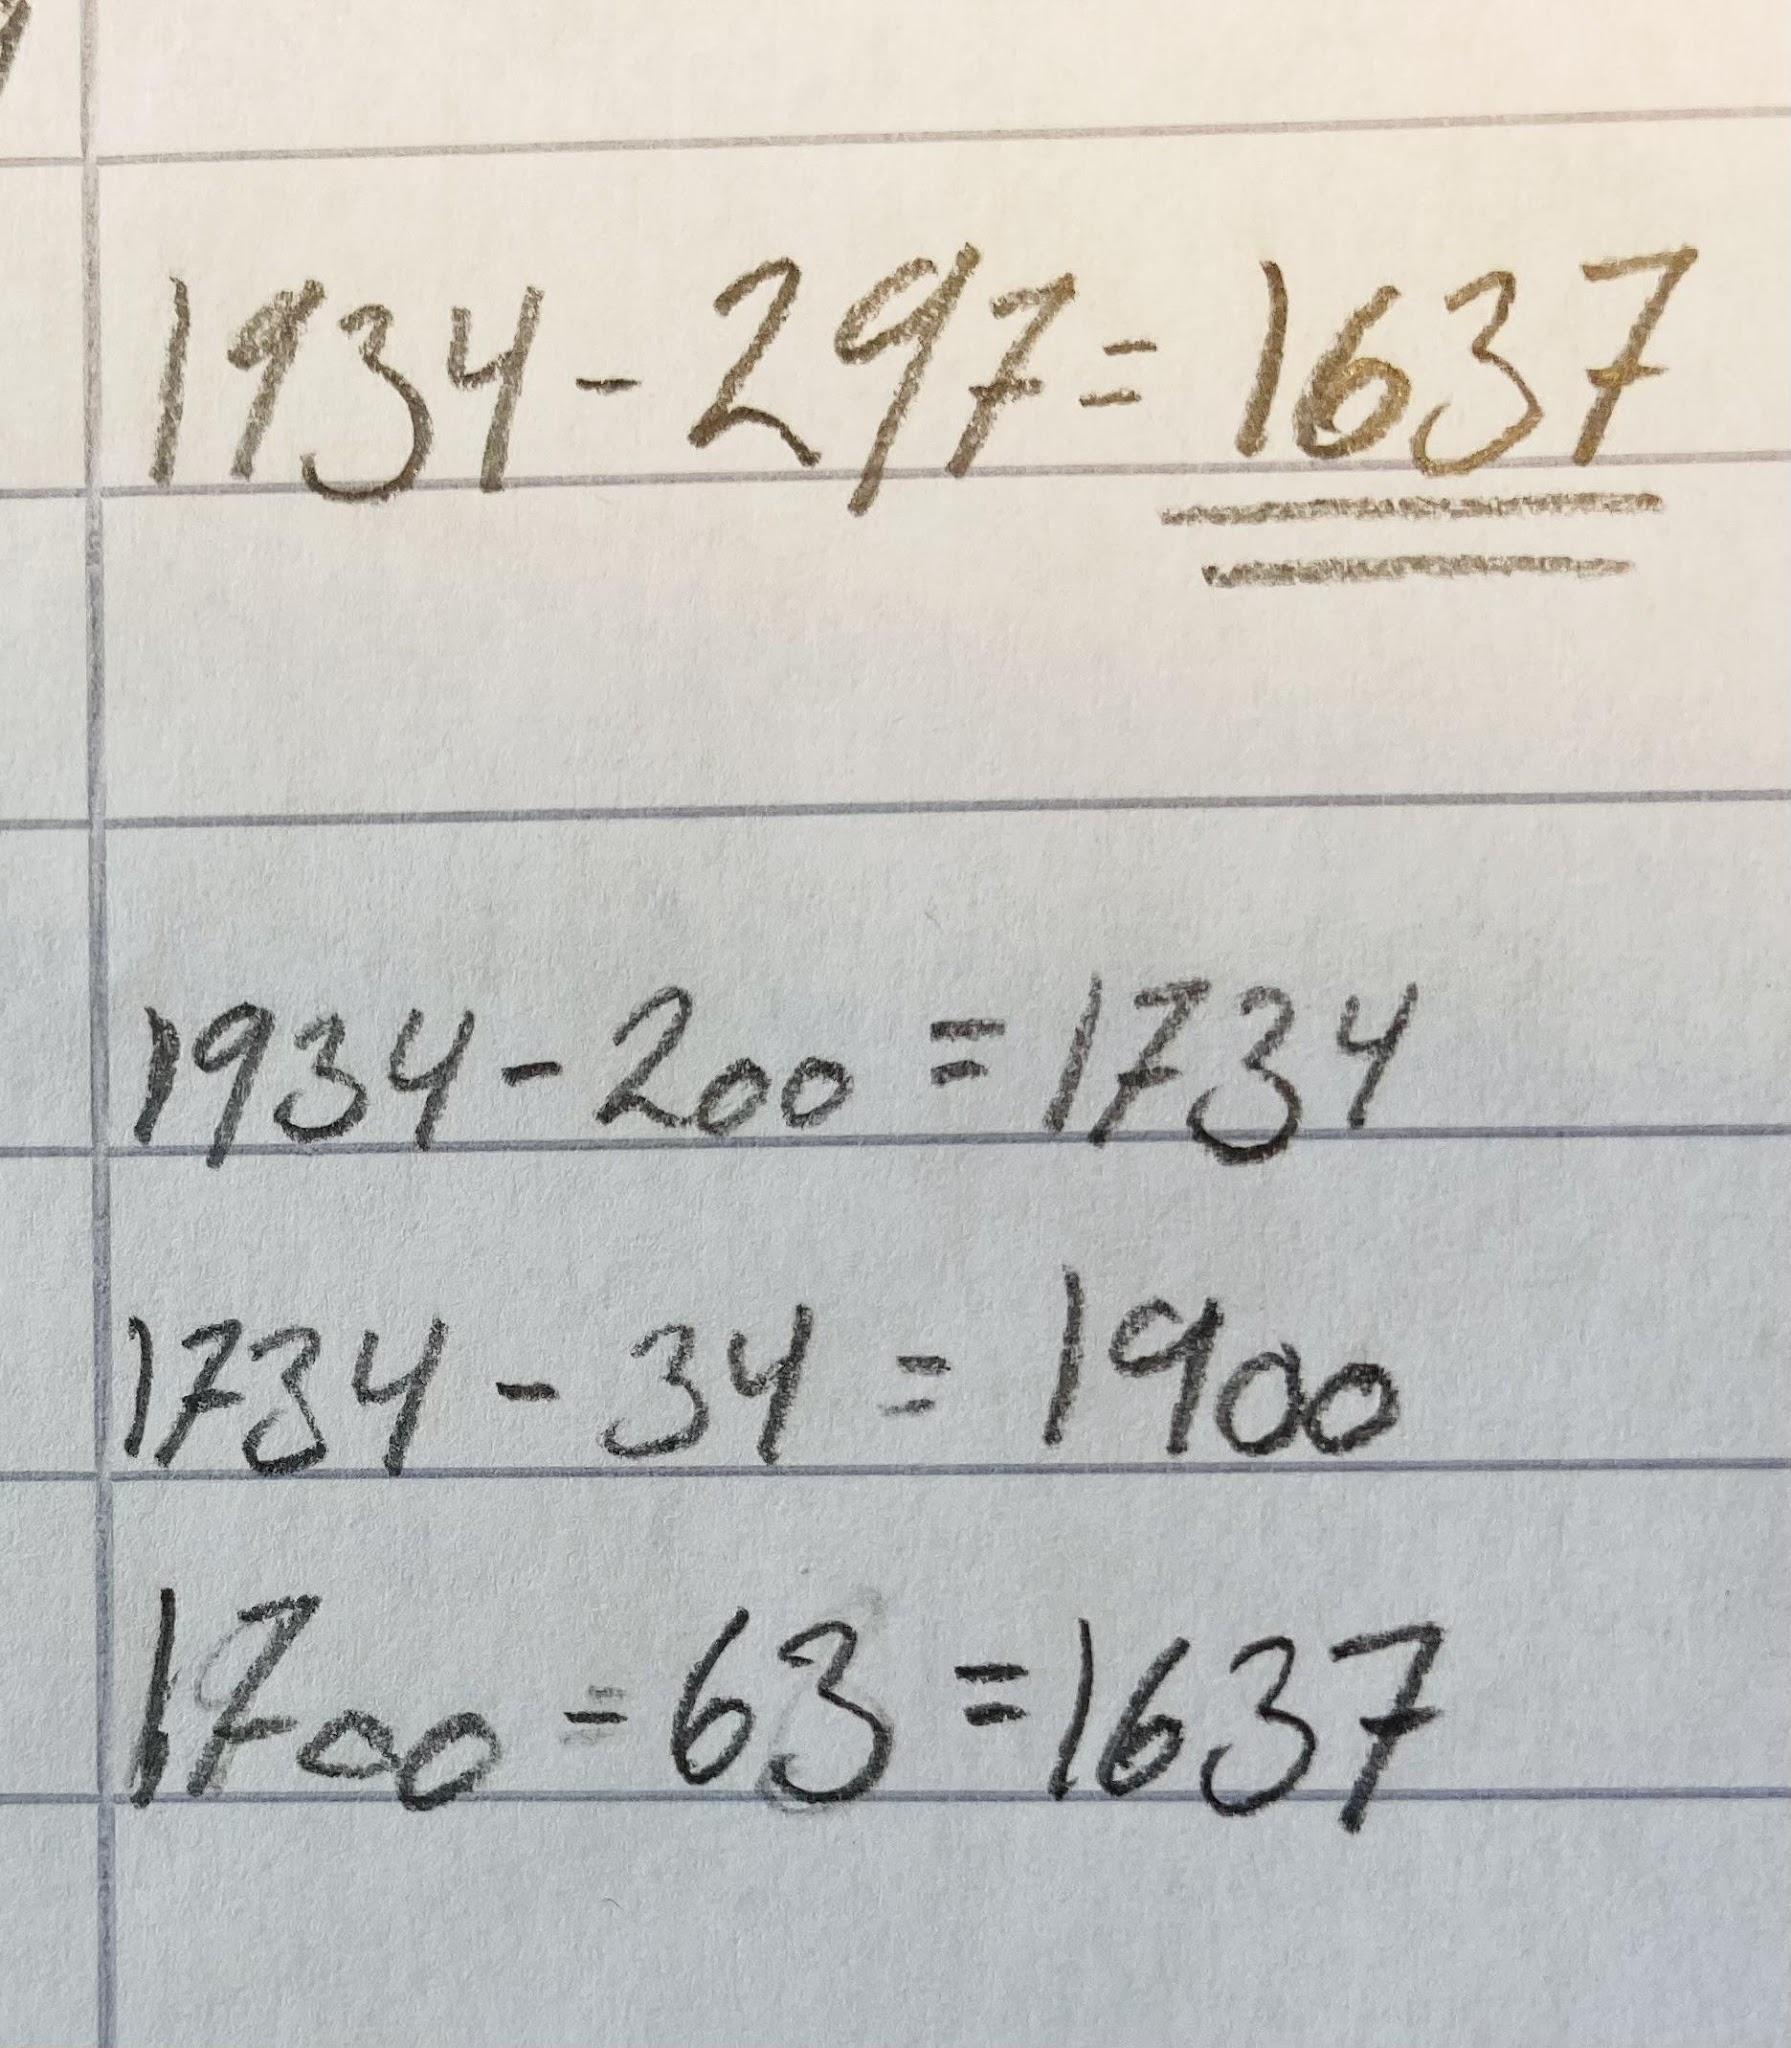 1934 - 297 = 1637
1934 - 200 = 1734
1734 - 34 = 1900
1700 = 63 = 1637